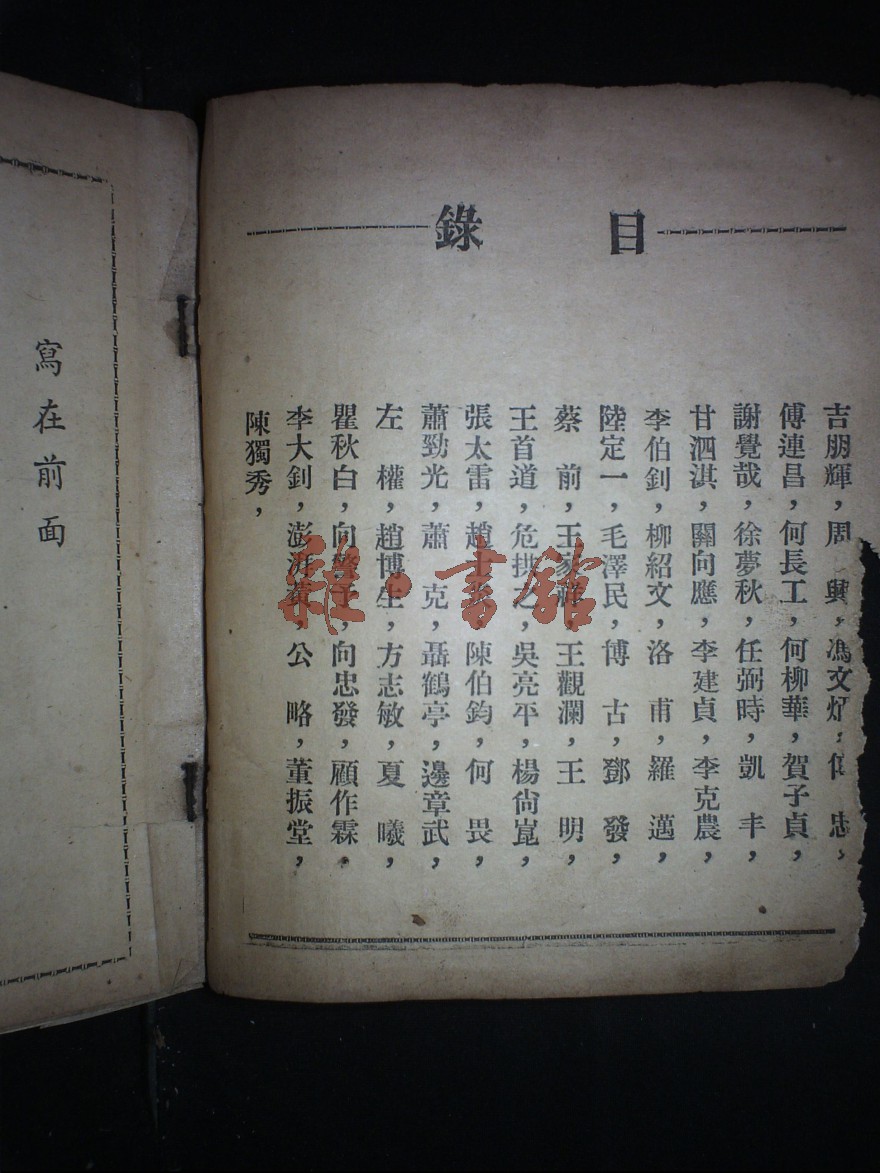 目錄
吉朋輝，周 興，馮文炳，伍 忠，
傅連昌，何長工，何柳華，賀子貞，
謝覺哉，徐夢秋，任弼時，凱 丰，
甘泗淇，關向應，李建貞，李克農，
李伯釗，柳紹文，洛 甫，羅 邁，
陸定一，毛澤民，博 古，鄧 發，
蔡 前，王家祥，王觀瀾，王 明，
王首道，危拱之，吳亮平，楊尙崑，
張太雷，趙 陳伯鈞，何 畏，
蕭勁光，蕭 克，聶鶴亭，邊章武，
左 權，趙博生，方志敏，夏 曦，
瞿秋白，向 子，向忠發，顧作霖，
李大釗，澎湃黃，公 略，董振堂，
陳獨秀，
寫在前面
雅·書館